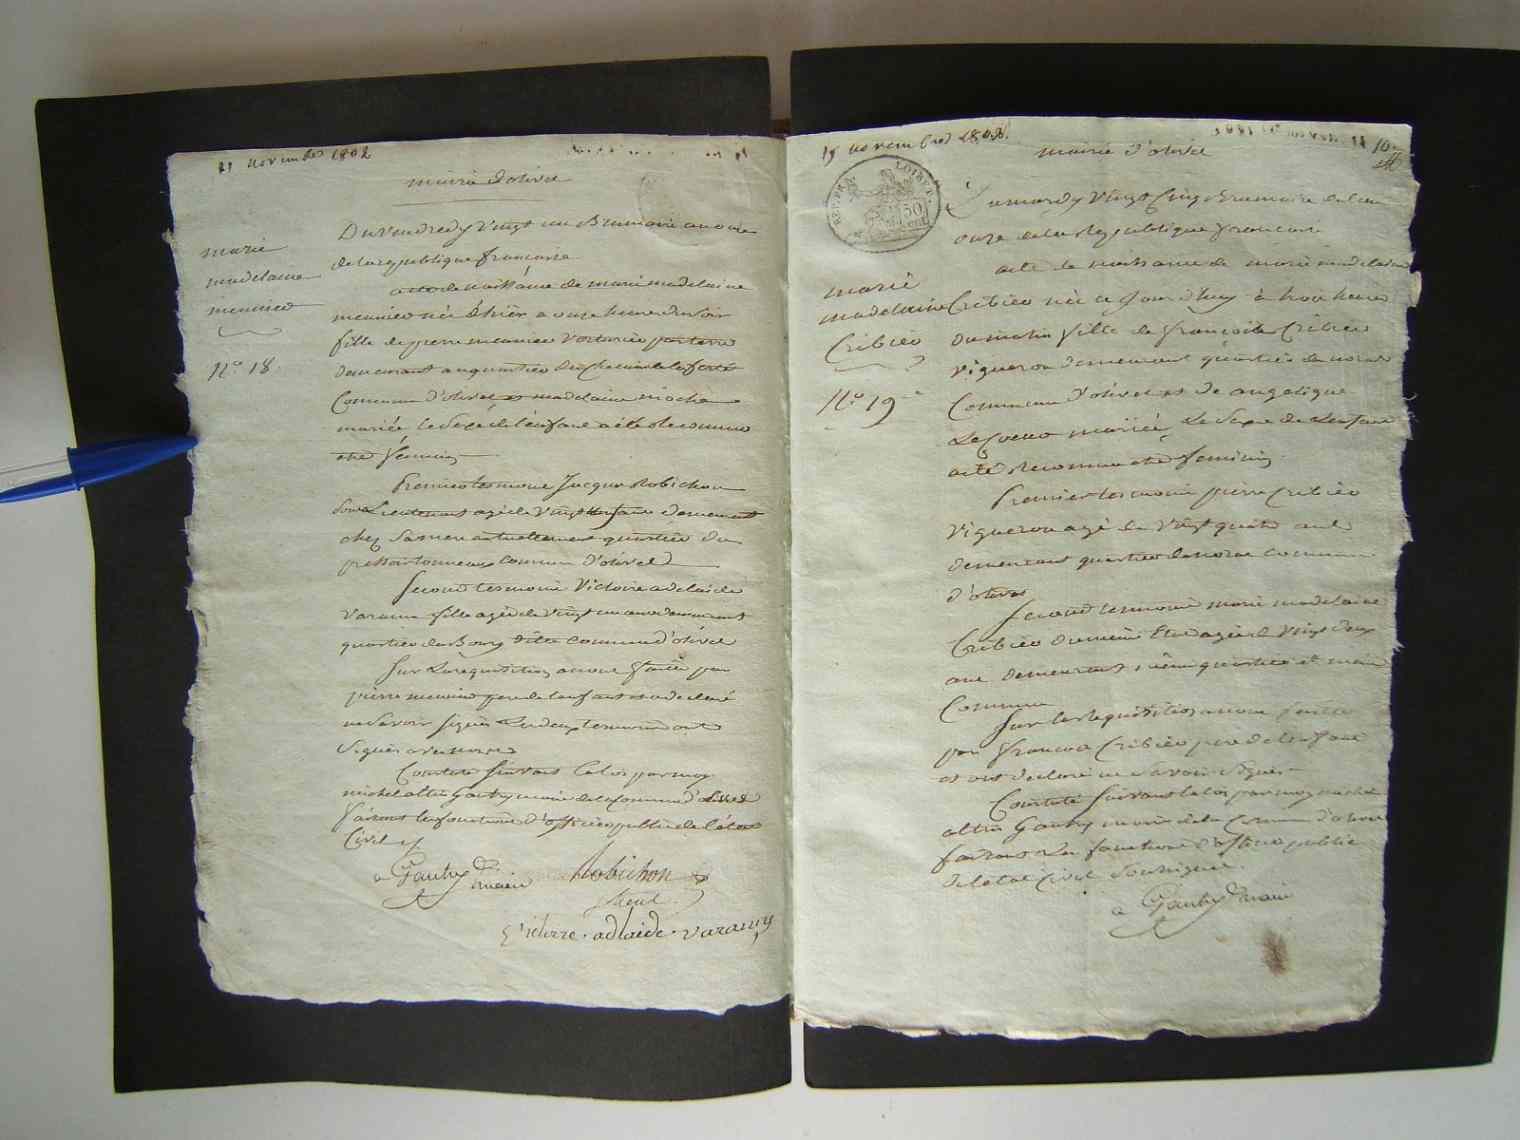 21 novembre 1802
mairie d'olivet
marie
madelaine
meunier
N.o 18.
Du Vendredy Vingt un Brumaire an onze
de la republique francaise
acte de Naissance de marie madelaine
meunier née d'hier a onze heure du soir
fille de pierre meunier Voiturier par terre
demeurant au quartier du Chemin de la ferté
Commune d'olivet et madelaine
mariée le Sexe de l'enfant a été Reconnu
etre féminin
Premier tesmoin Jacque Robichon
Sous Lieutenant agé de Vingt ans demeurant
chez Sa mere actuellement quartier du
commune d'olivet
Second tesmoin Victoire adelaide
Varanne fille agée de Vingt un ans demeurant
quartier du Bourg dite Commune d'olivet
Sur La requisition a nous faitte par
pierre meunier pere de l'enfant et a declaré
ne Savoir signer Les deux tesmoins ont
Signés avec nous
Constaté Suivant la loi par moy
michel altin Gautry maire de la Commune d'olivet
faisant les fonctions d'officier public de l'état
Civil
a Gautry maire Robichon
S Lieut.
Victoire adlaide varanne
15 novembre 1802.
10
mairie d'olivet
REP. FRA. LOIRET.
50
CENT.
marie
madelaine
Cribier
N.o 19
Du mardy Vingt Cinq Brumaire de l'an
onze de la Republique francaise
acte de naissance de marie madelaine
Cribier née ce Jour d'huy à heure
Du matin fille de francois Cribier
Vigneron demeurant quartier de
Commune d'olivet et de angelique
mariée Le Sexe de L'enfant
a été Reconnu etre feminin
Premier tesmoin pierre Cribier
Vigneron agé de Vingt quatre ans
demeurant quartier commune
d'olivet
Second tesmoin marie madelaine
Cribier agée de Vingt deux
ans demeurant même quartier et même
Commune
Sur la Requisition a nous faitte
par francois Cribier pere de l'enfant
et ont declaré ne Savoir Signer
Constaté Suivant la loi par moy michel
altin Gautry maire de la Commune d'olivet
faisant Les fonctions d'officier public
de l'etat Civil Soussigné.
a Gautry maire